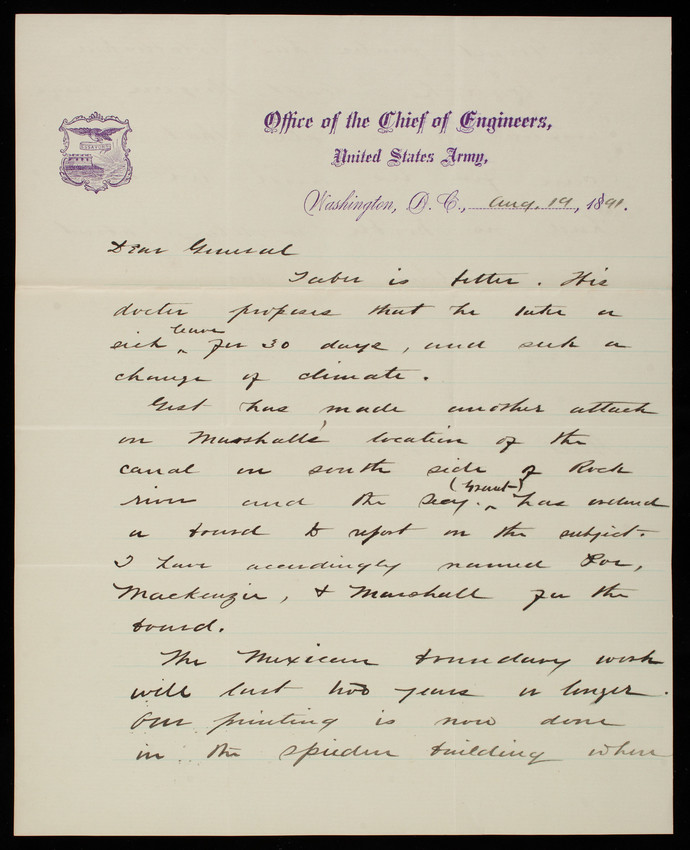 ESSAYONS
Office of the Chief of Engineers,
United States Army,
Washington, D. C., Aug. 19, 1891.
Dear General
Taber is better. His
doctor proposes that he take a
leave
sick ‸ for 30 days, and seek a
change of climate.
Gest has made another attack
on Marshall's location of the
canal on south side of Rock
(Grant)
river and the Secy. ‸ has ordered
a board to report on the subject.
I have accordingly named Poe,
Mackenzie, & Marshall for the
board.
The Mexican boundary work
will last two years or longer.
Our printing is now done
in the Spieden building where